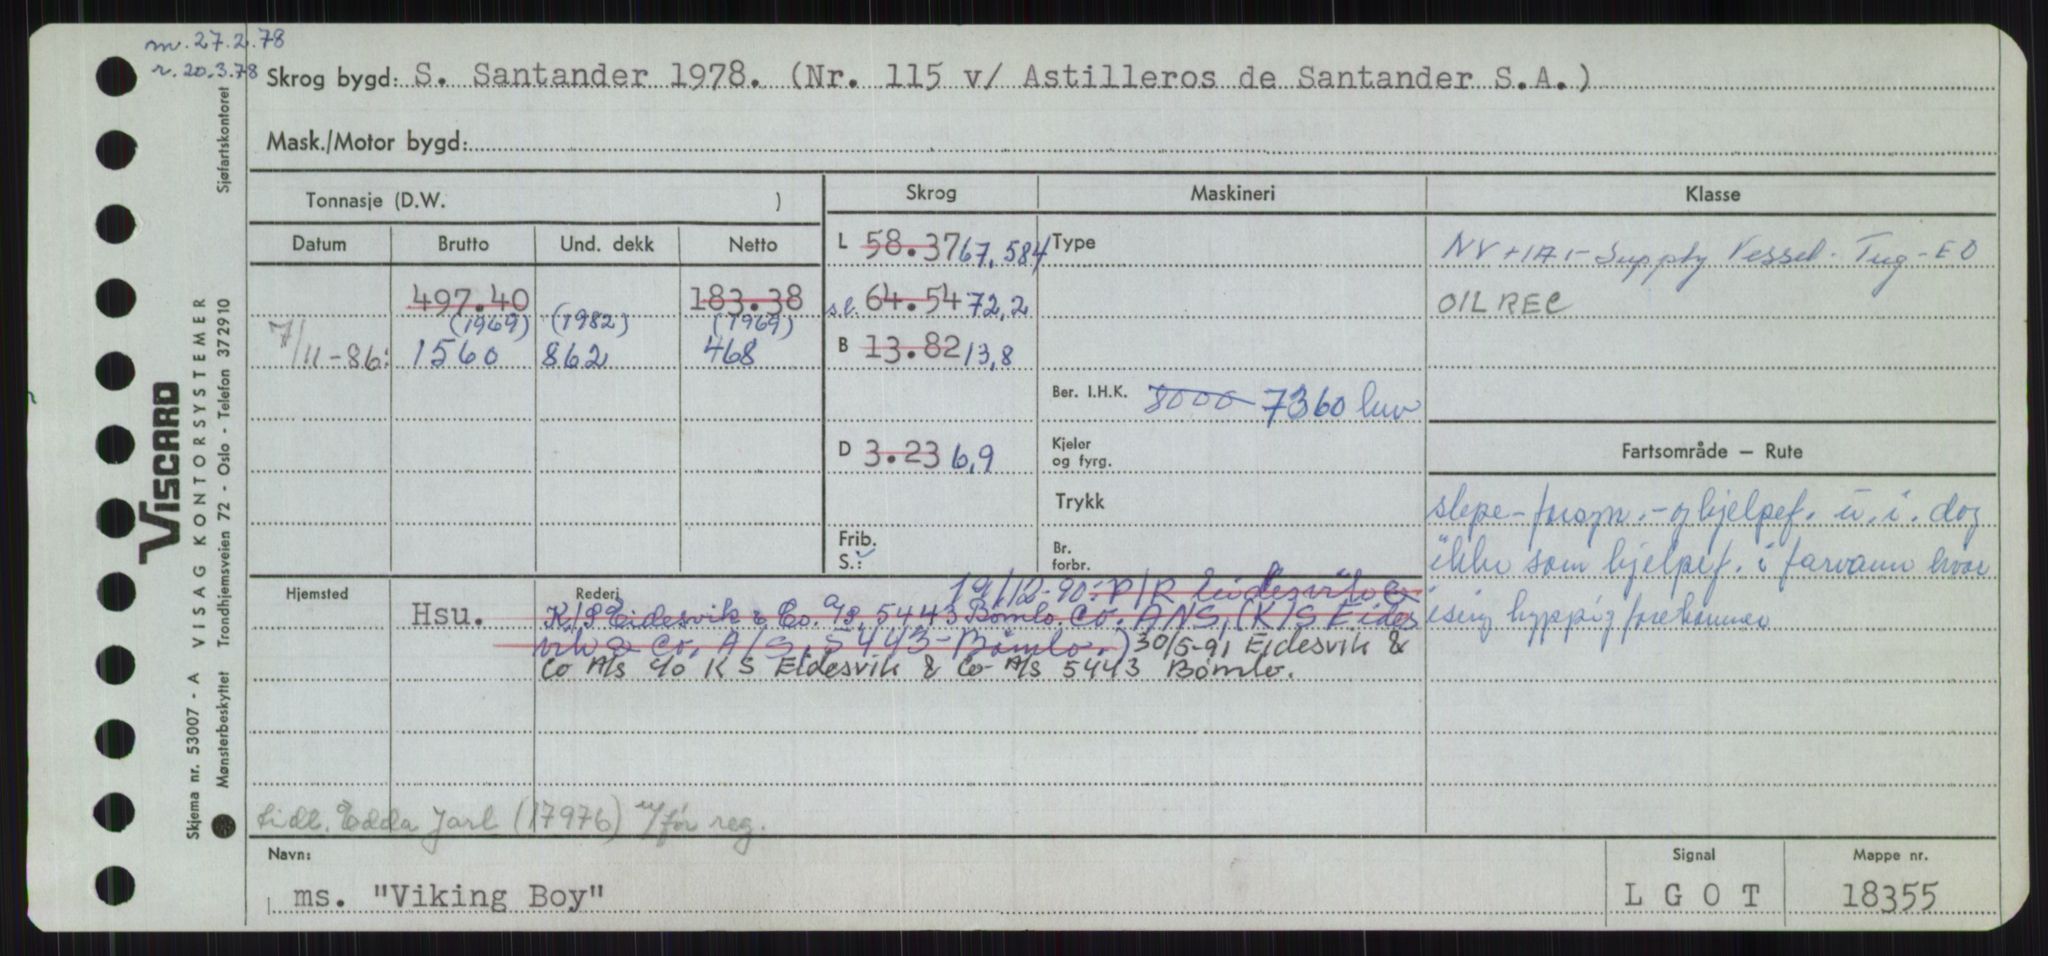 m. 27.2.78
r. 20.3.78
Skrog bygd: S. Santander 1978. (Nr. 115 v/ Astilleros de Santander S.A.)
Mask./Motor bygd:
Tonnasje (D.W. )
Skrog
Maskineri
Klasse
Datum
Brutto
Und. dekk
Netto
L 58.37 67,584
Type
NV +1A1- Supply Vessel - Tug - EO
497.40
183.38
sl. 64.54 72,2
OIL REC
(1969) (1982) (1969)
7/11-86: 1560 862 468
B 13.82 13,8
Ber. I.H.K. 8000 7360
D 3.23 6,9
Kjeler
og fyrg.
Fartsområde — Rute
Trykk
slepe- forsyn.- og hjelpef. u. i. dog
Frib.
S.:
Br.
forbr.
ikke som hjelpef. i farvann hvor
ising hyppig forekommer
Hjemsted
Rederi
19/12-90: P/R Eidesvik &
Hsu.
K/S Eidesvik & Co. A/S, 5443 Bømlo. Co. ANS, (K/S Eides
vik & Co. A/S, 5443 - Bømlo.) 30/5-91 Eidesvik &
Co A/s c/o K S Eidesvik & Co A/s 5443 Bømlo.
tidl. Edda Jarl (17976) før reg.
Navn:
Signal
Mappe nr.
ms. "Viking Boy"
L G O T
18355
Sjøfartskontoret
VISCARD
VISAG KONTORSYSTEMER
Trondhjemsveien 72 - Oslo - Telefon 372910
Skjema nr. 53007 - A
Mønsterbeskyttet